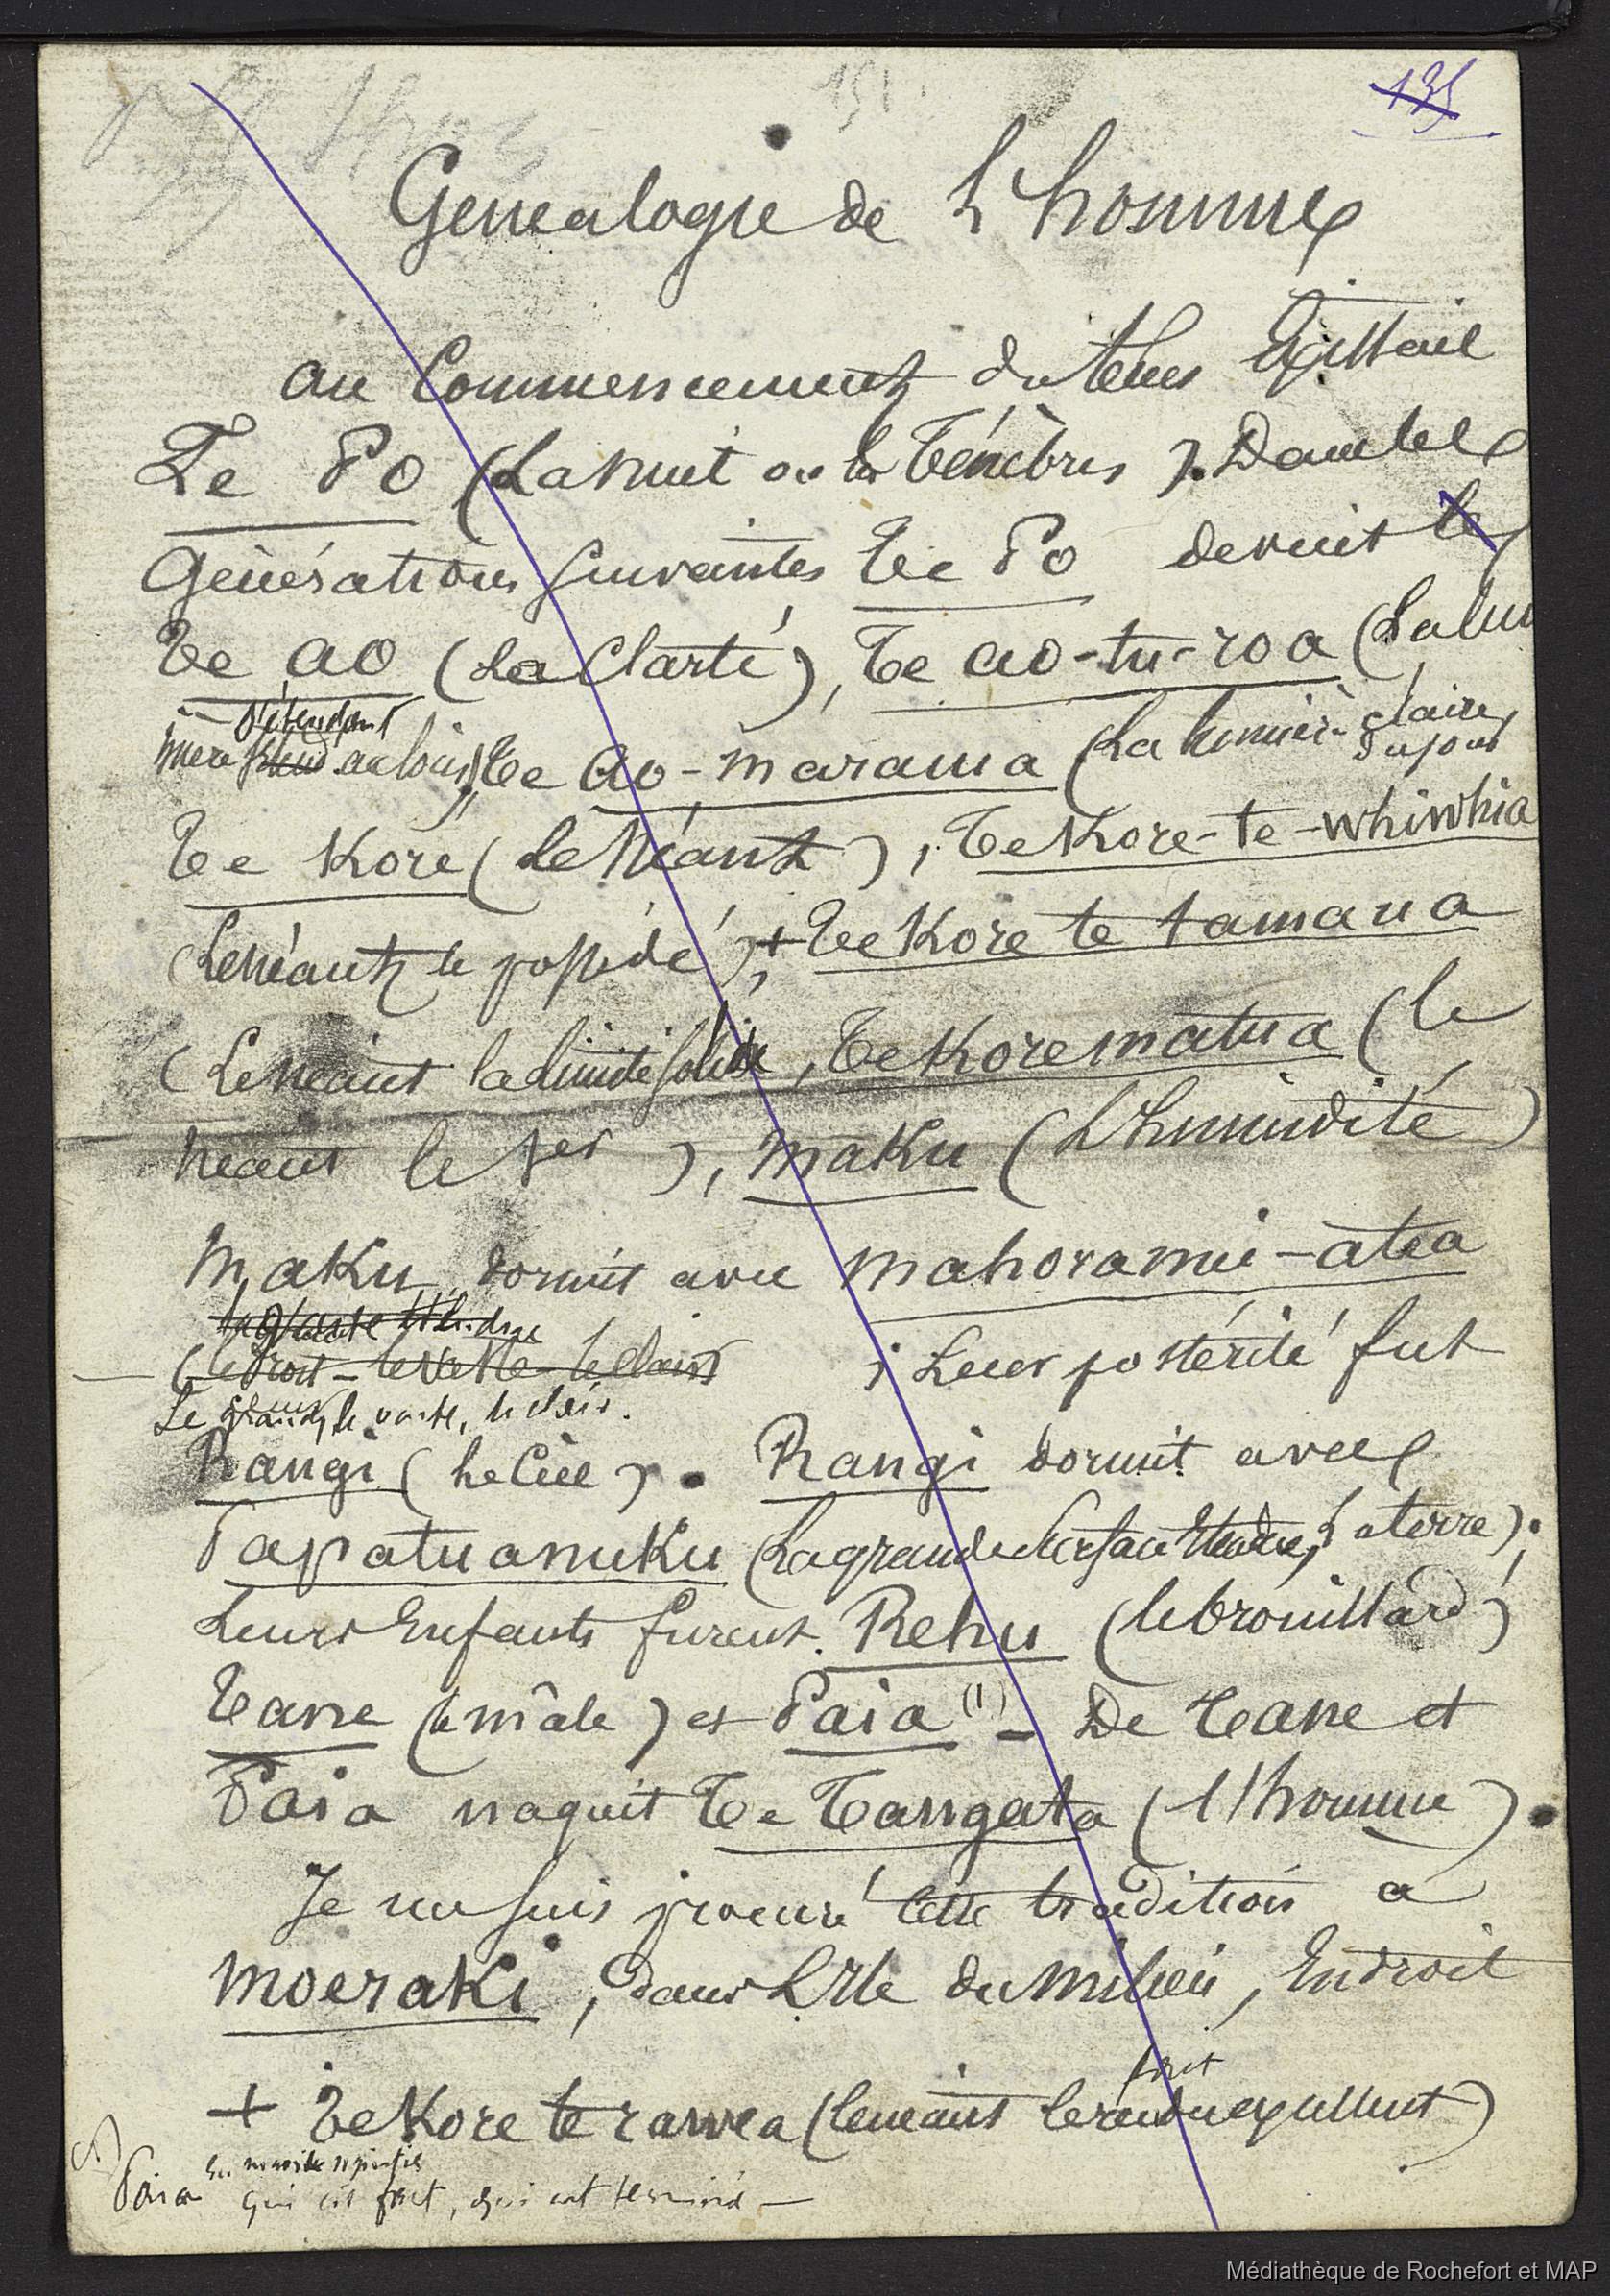 151
135
Généalogie de L'homme
au Commencement du tems Existait
Te Po (La Nuit ou les Ténèbres). Dans les
Générations suivantes Te Po devint le
Te ao (La Clarté), Te ao-tu-roa (La lu
s'étendant
mière au loin), Te Ao-marama (La lumière claire
du jour
Te Kore (le Néant), Te Kore-te-whiwhia
(Le néant le possédé), + Te Kore te tamaua
(Le néant la limité solide, Te Kore matua (le
néant le ), Maku (L'humidité)
Maku dormit avec Mahoranui-atea
la Grande Etendue
(le Droit - le vaste - le clair
Le grand, le vaste, le clair.
; Leur postérité fut
Rangi (Le Ciel). Rangi dormit avec
Papatuanuku (La grande Surface Etendue, La terre);
Leurs Enfants furent Rehu (le brouillard)
Tane (le mâle) et Paia (1) - De Tane et
Paia naquit Te Tangata (l'homme).
Je me suis procuré cette tradition à
Moeraki, dans L'Ile du Milieu, Endroit
fait
+ Te Kore te rawea (le néant le rendu excellent)
(1) Paia en maori signifie
qui est fait, qui est terminé -
Médiathèque de Rochefort et MAP